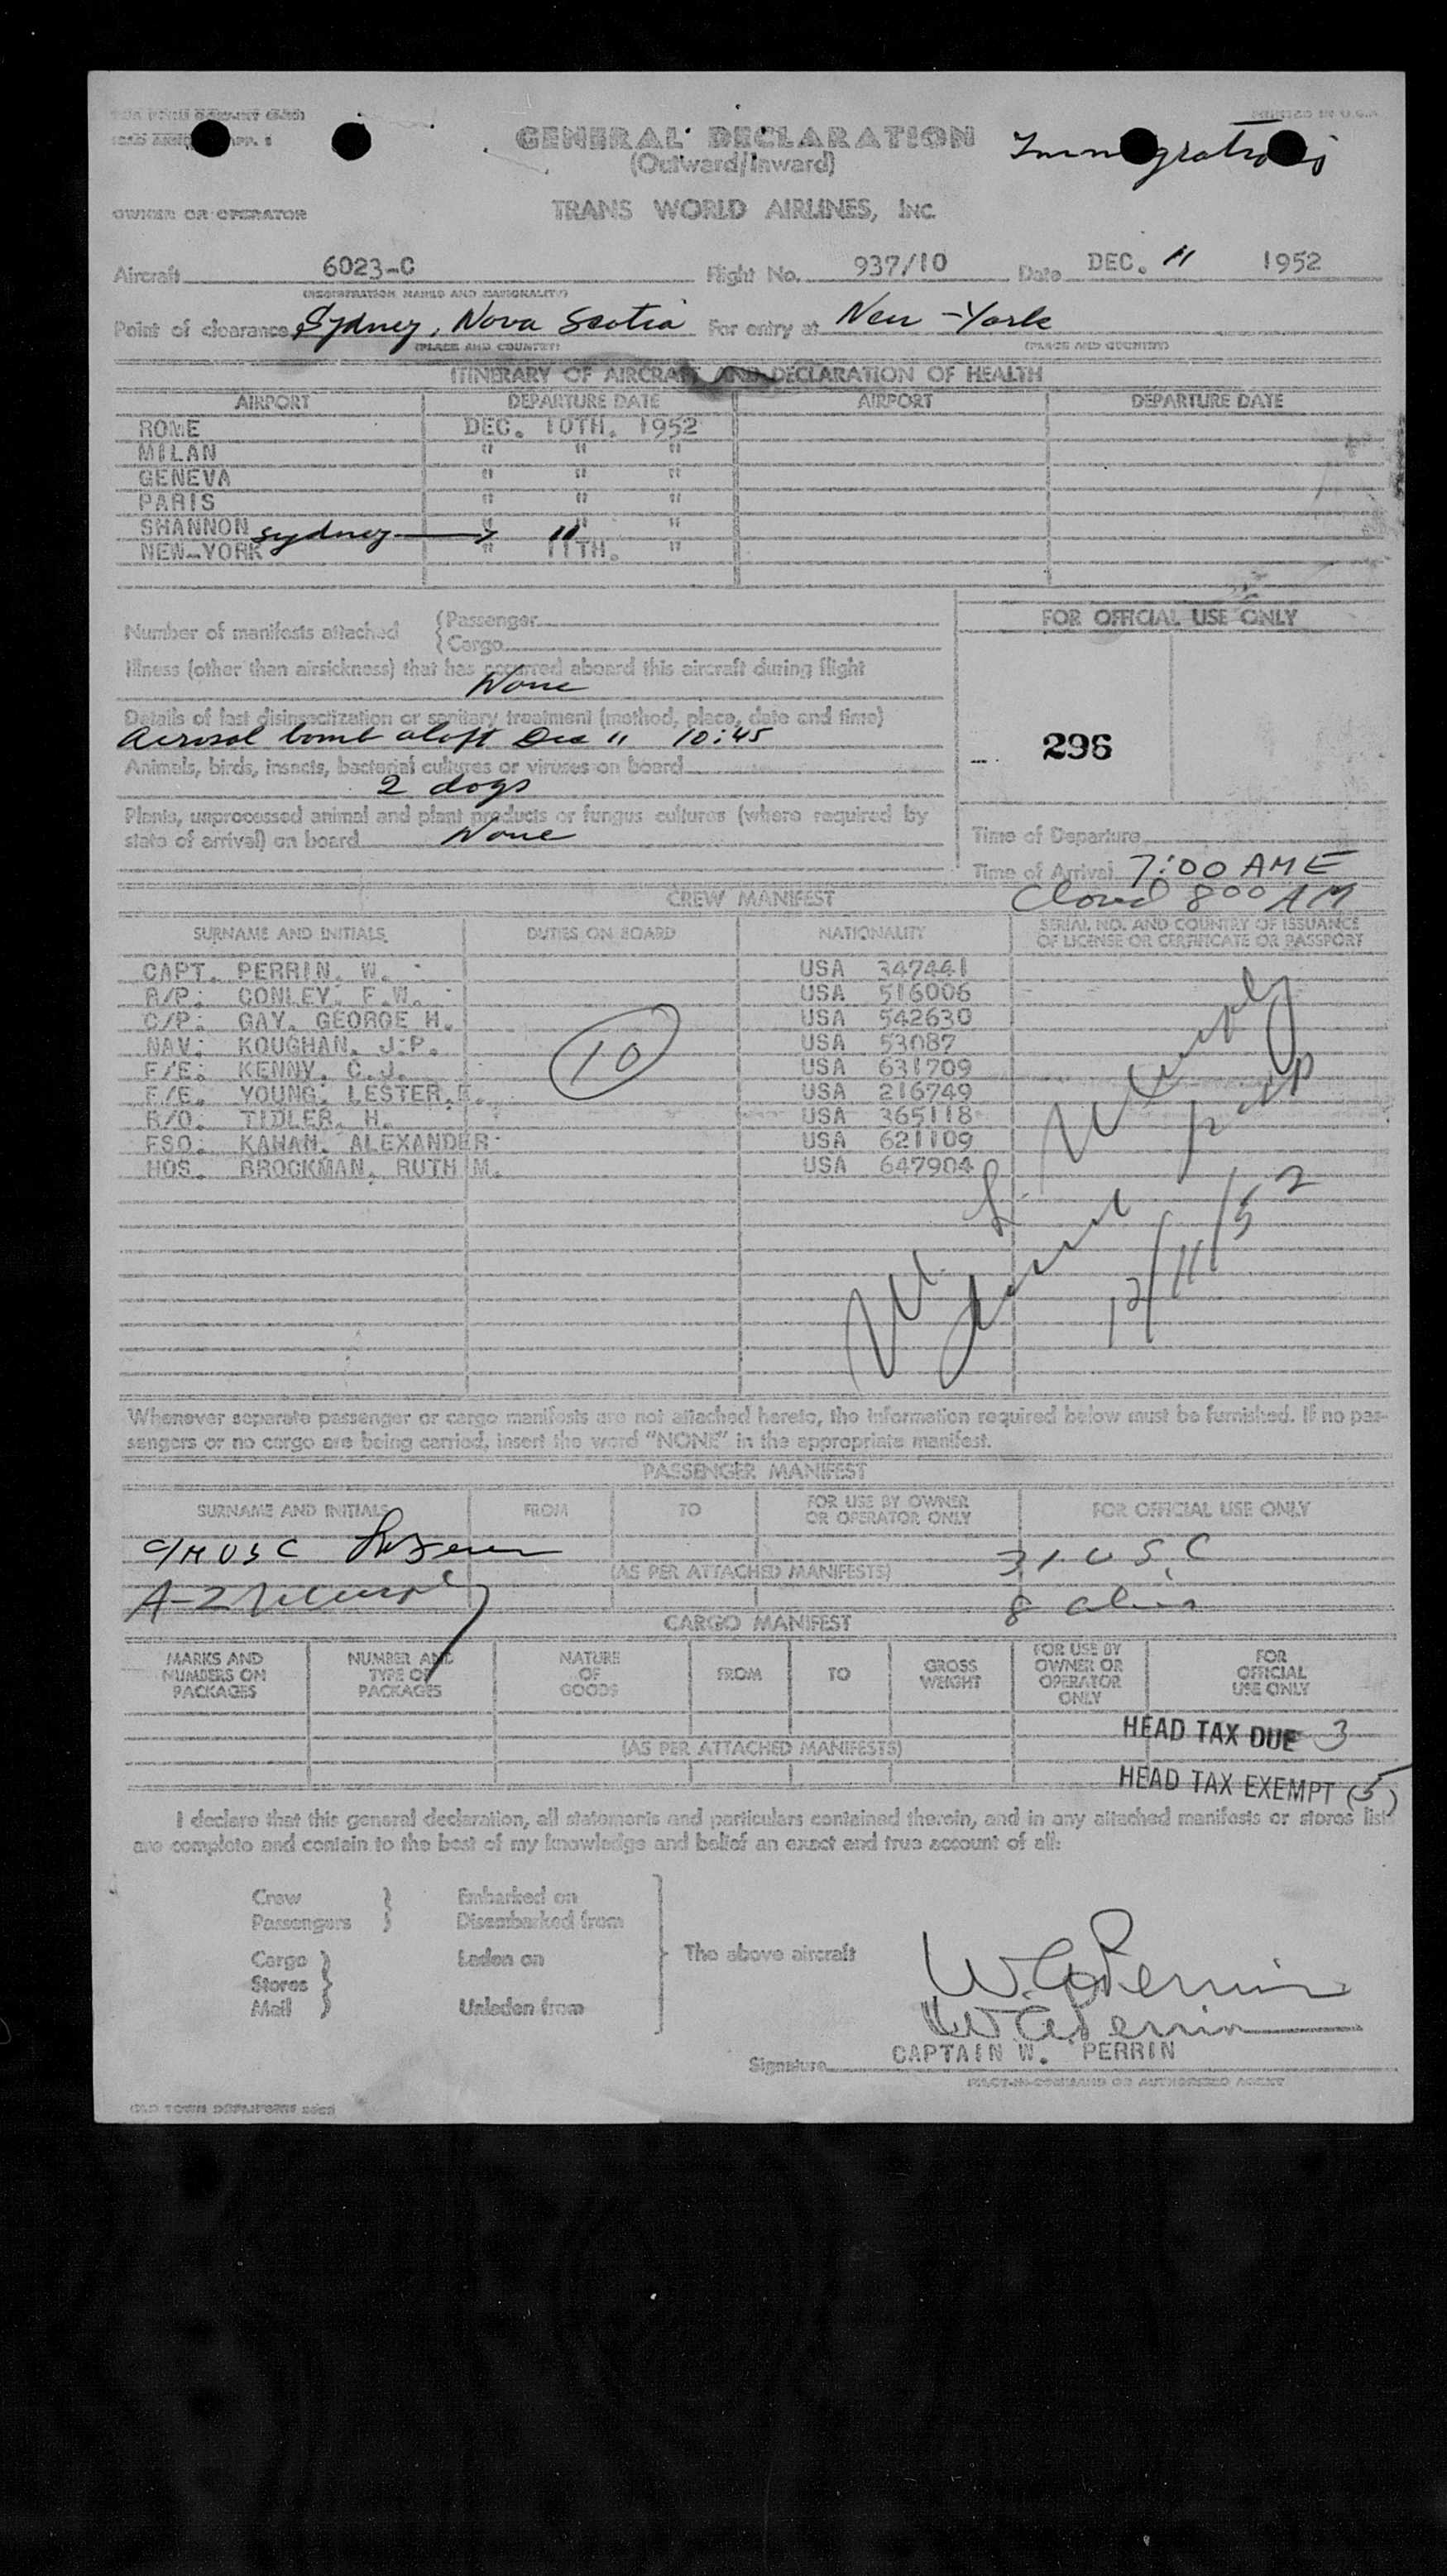 GENERAL DECLARATION
(Outward/Inward)
OWNER OR OPERATOR TRANS WORLD AIRLINES, INC
Aircraft 6023-C Flight No. 937/10 Date DEC. 11 1952
(REGISTRATION MARKS AND NATIONALITY)
Point of clearance Sydney, Nova Scotia For entry at New-York
(PLACE AND COUNTRY) (PLACE AND COUNTRY)
ITINERARY OF AIRCRAFT AND DECLARATION OF HEALTH
AIRPORT DEPARTURE DATE AIRPORT DEPARTURE DATE
ROME DEC. 10TH. 1952
MILAN " " "
GENEVA " " "
PARIS " " "
SHANNON " " "
Sydney 11
NEW-YORK " 11TH. "
Number of manifests attached {Passenger
{Cargo
FOR OFFICIAL USE ONLY
Illness (other than airsickness) that has occurred aboard this aircraft during flight
None
Details of last disinsectization or sanitary treatment (method, place, date and time)
Aerosol bomb aloft Dec 11 10:45
296
Animals, birds, insects, bacterial cultures or viruses on board
2 dogs
Plants, unprocessed animal and plant products or fungus cultures (where required by
state of arrival) on board None
Time of Departure
Time of Arrival 7:00 AM E
800 AM
CREW MANIFEST
SURNAME AND INITIALS DUTIES ON BOARD NATIONALITY SERIAL NO. AND COUNTRY OF ISSUANCE
OF LICENSE OR CERTIFICATE OR PASSPORT
CAPT. PERRIN. W. USA 347441
R/P. CONLEY. F.W. USA 516006
C/P. GAY. GEORGE H. USA 542630
NAV. KOUGHAN. J.P. USA 53087
F/E. KENNY. C.J. USA 631709
F/E. YOUNG. LESTER. USA 216749
R/O. TIDLER. H. USA 365118
FSO. KAHAN. ALEXANDER USA 621109
HOS. BROCKMAN. RUTH M. USA 647904
10
12/11/52
Whenever separate passenger or cargo manifests are not attached hereto, the information required below must be furnished. If no pas-
sengers or no cargo are being carried, insert the word "NONE" in the appropriate manifest.
PASSENGER MANIFEST
SURNAME AND INITIALS FROM TO FOR USE BY OWNER
OR OPERATOR ONLY FOR OFFICIAL USE ONLY
USC 31 USC
(AS PER ATTACHED MANIFESTS)
A-2 8
CARGO MANIFEST
MARKS AND
NUMBERS ON
PACKAGES NUMBER AND
TYPE OF
PACKAGES NATURE
OF
GOODS FROM TO GROSS
WEIGHT FOR USE BY
OWNER OR
OPERATOR
ONLY FOR
OFFICIAL
USE ONLY
HEAD TAX DUE 3
(AS PER ATTACHED MANIFESTS)
HEAD TAX EXEMPT (5)
I declare that this general declaration, all statements and particulars contained therein, and in any attached manifests or stores lists
are complete and contain to the best of my knowledge and belief an exact and true account of all:
Crew Embarked on
Passengers Disembarked from
Cargo Laden on The above aircraft
Stores
Mail Unladen from
W.G. Perrin
W G Perrin
CAPTAIN W. PERRIN
Signature
PILOT-IN-COMMAND OR AUTHORIZED AGENT